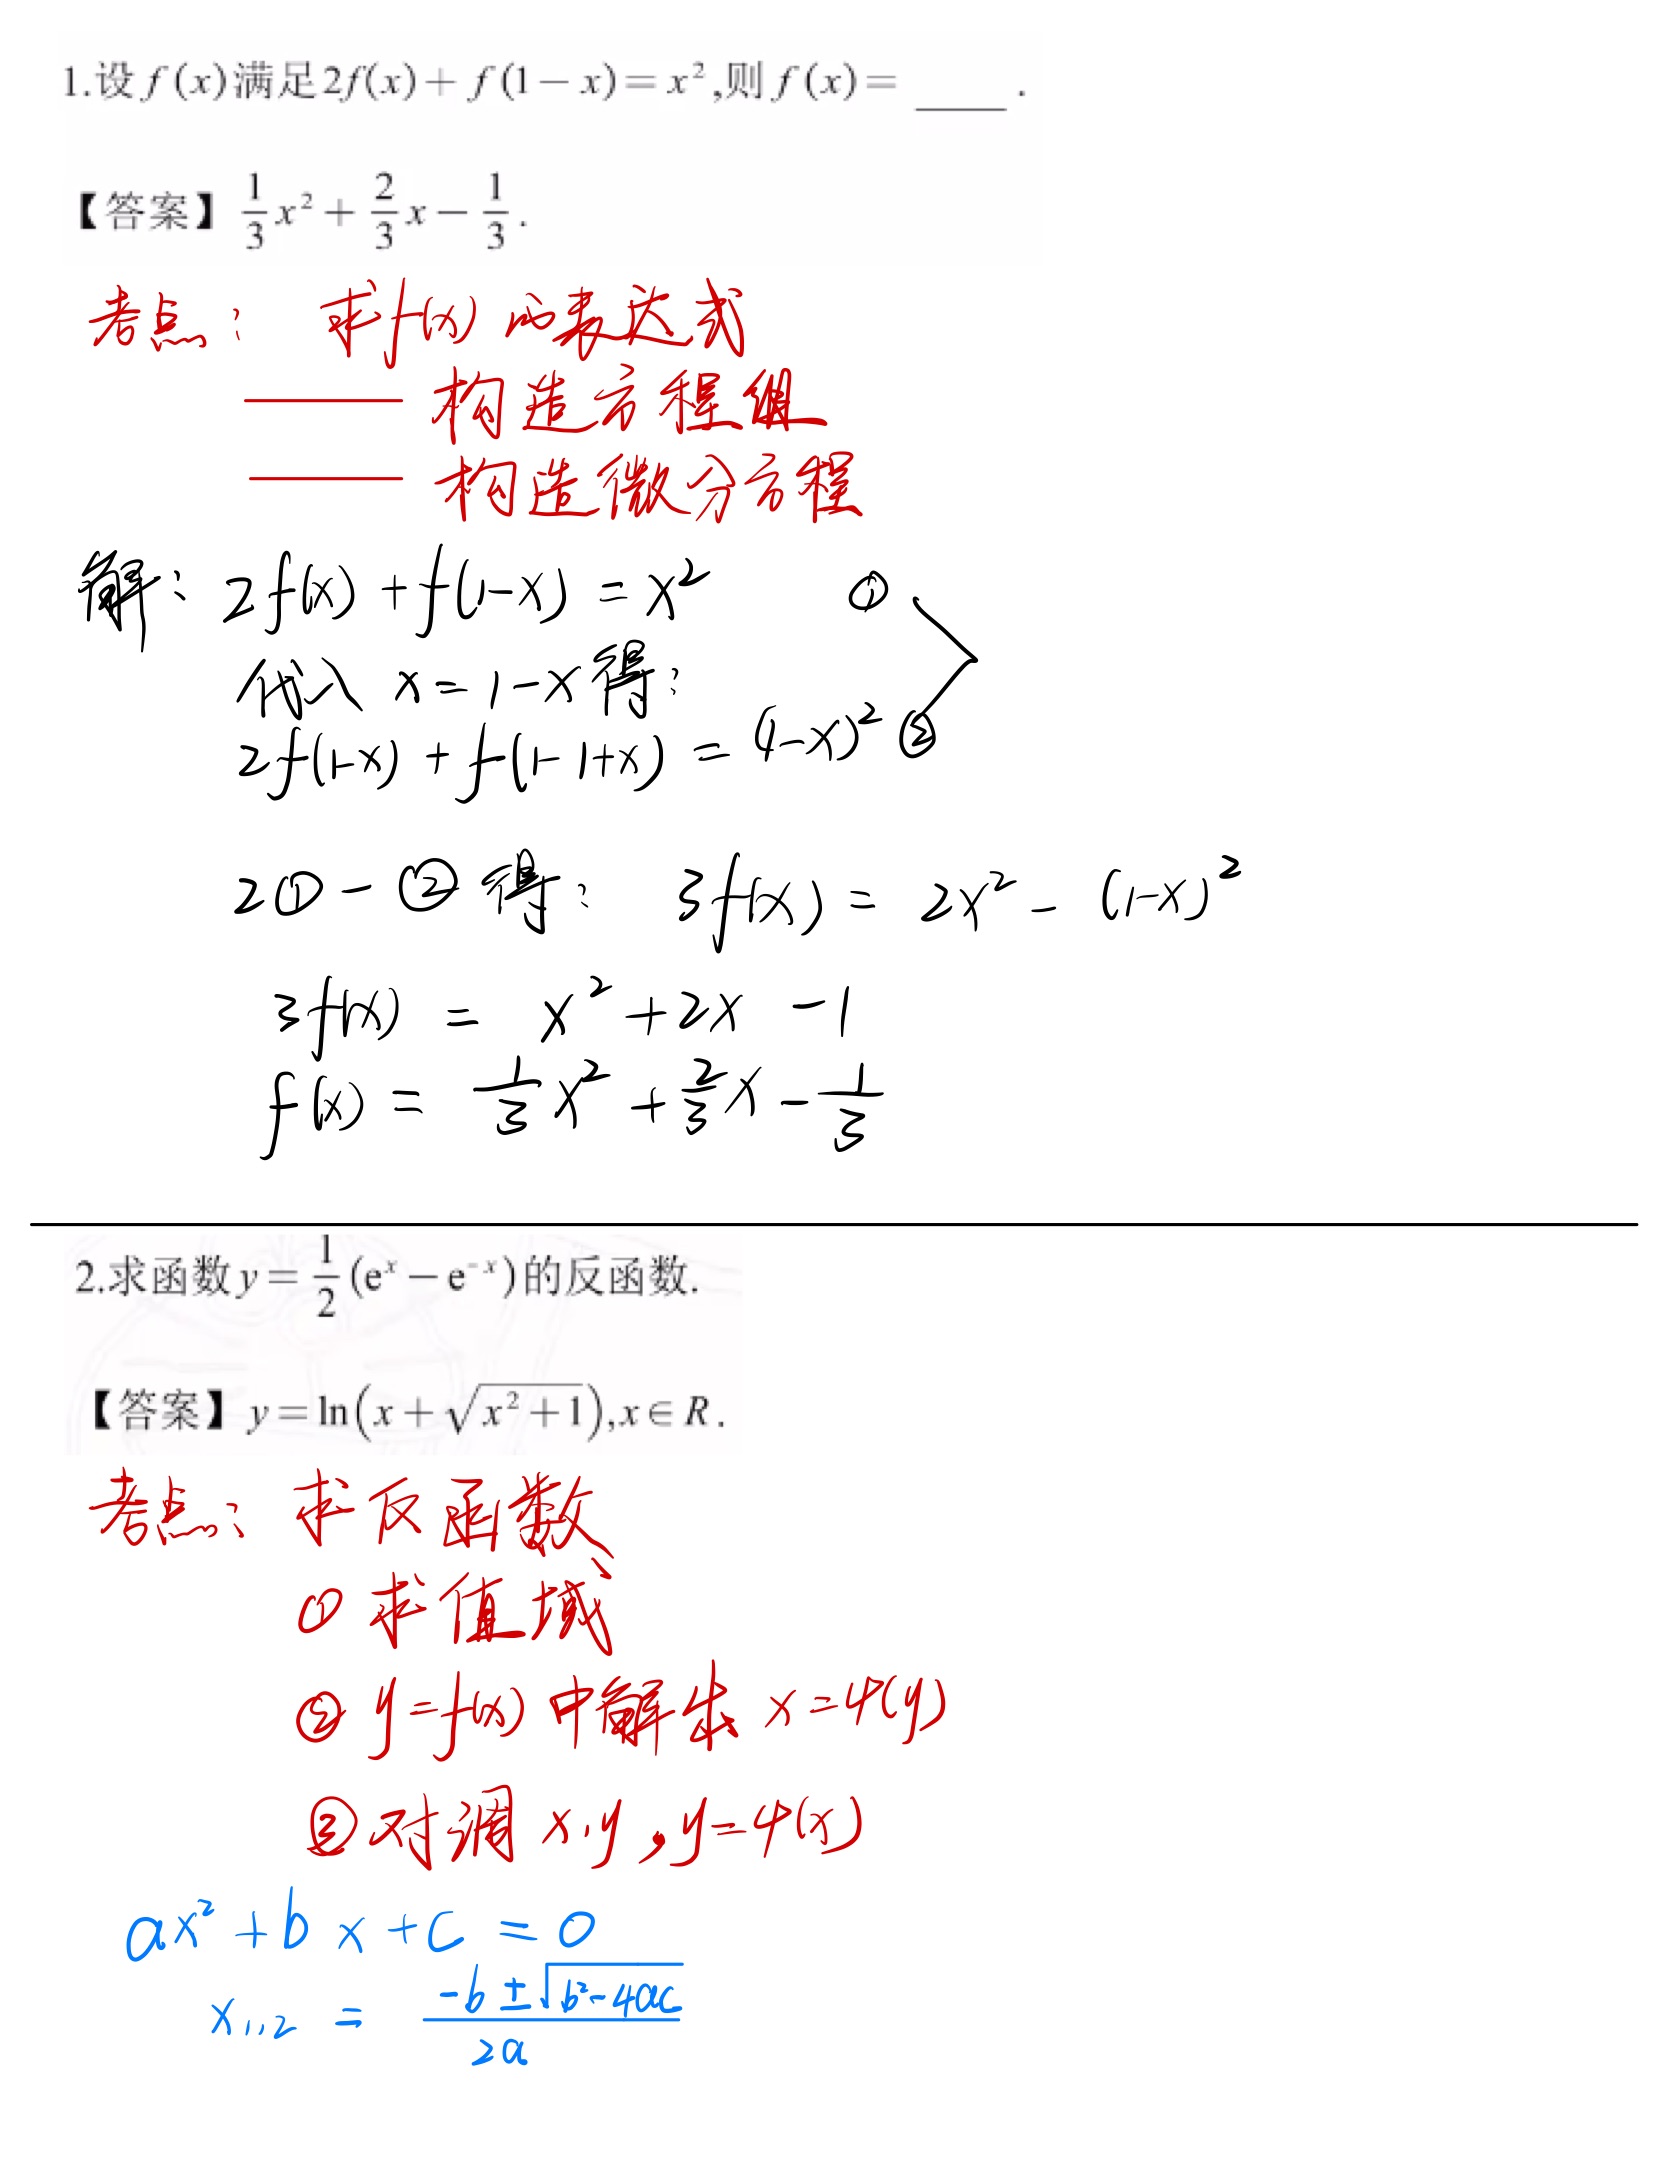 1.设f(x)满足2f(x)+f(1-x)=x²,则f(x)=____.
【答案】1/3x²+2/3x-1/3.
考点: 求f(x)的表达式
—— 构造方程组
—— 构造微分方程
解: 2f(x)+f(1-x)=x² ①
代入 x=1-x得:
2f(1-x)+f(1-1+x)=(1-x)² ②
2①-②得: 3f(x)=2x²-(1-x)²
3f(x)=x²+2x-1
f(x)=1/3x²+2/3x-1/3
2.求函数y=1/2(eˣ-e⁻ˣ)的反函数.
【答案】y=ln(x+√(x²+1)),x∈R.
考点: 求反函数
① 求值域
② y=f(x)中解出 x=φ(y)
③ 对调 x,y, y=φ(x)
ax²+bx+c=0
x₁,₂=(-b±√(b²-4ac))/2a